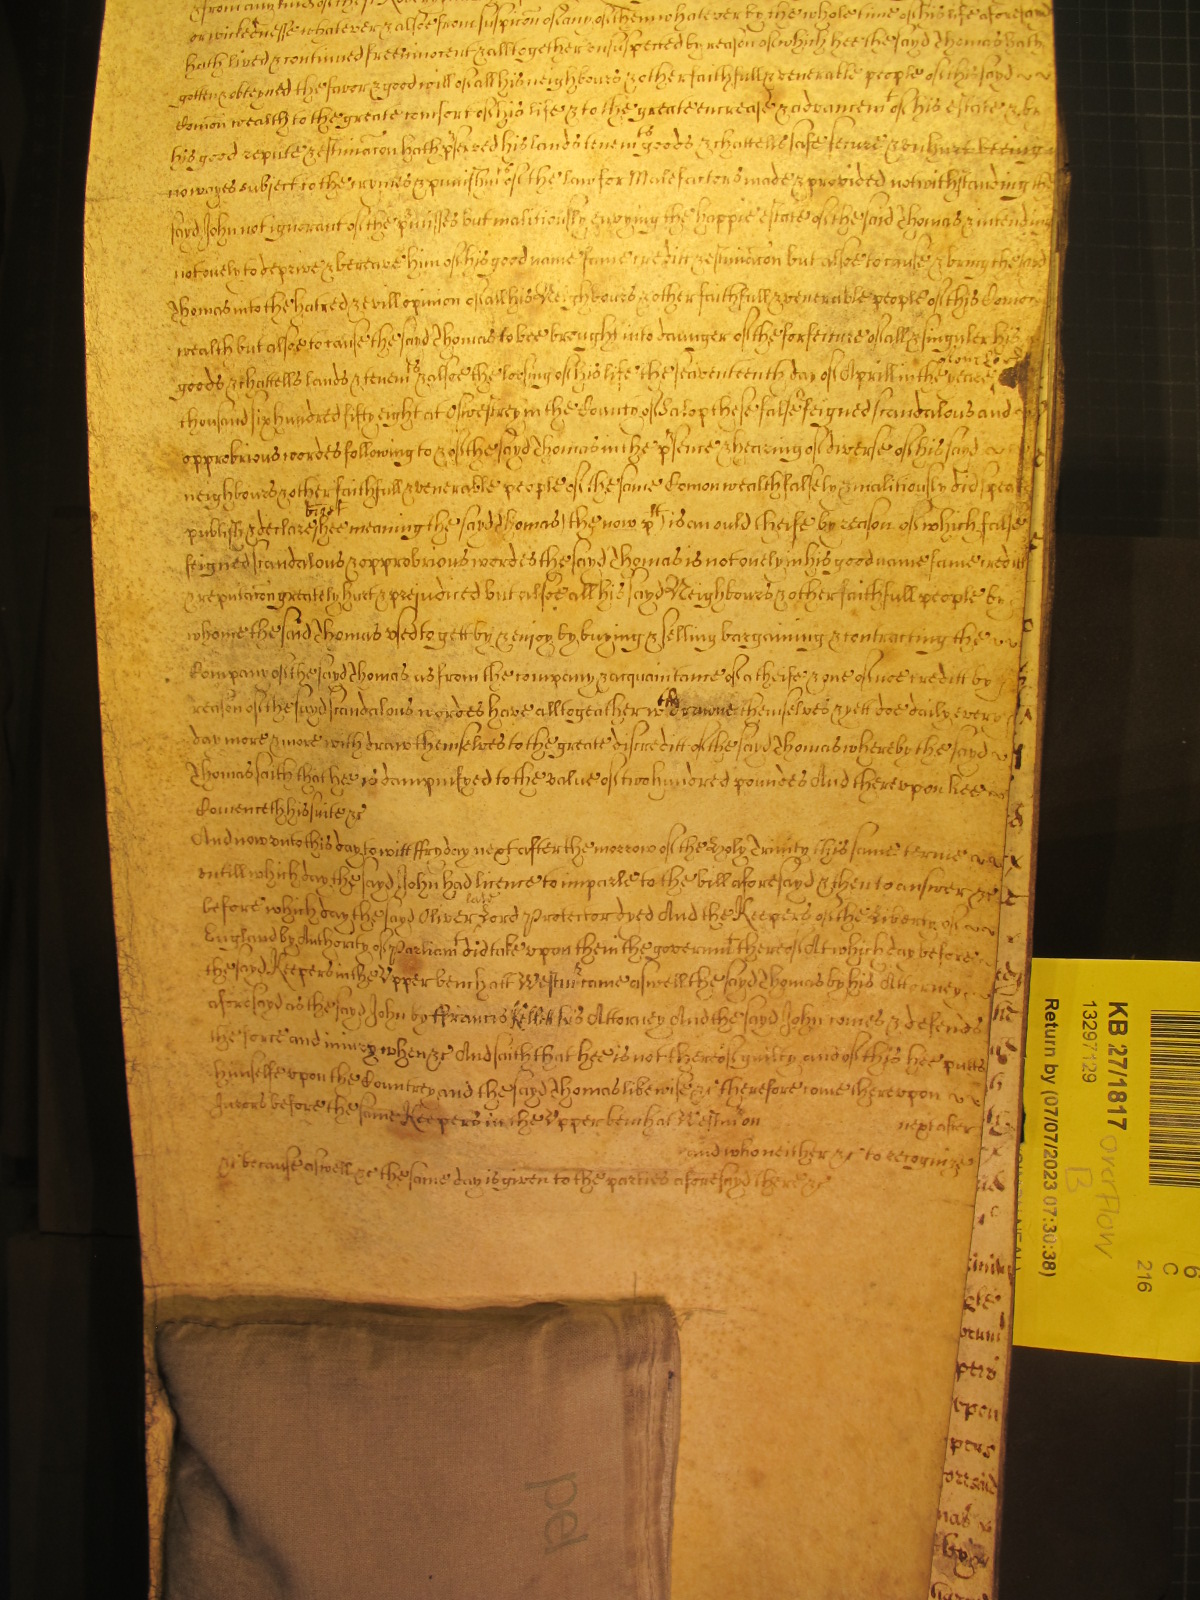 or wickednesse whatever & alsoe from suspicon of any of them whatever by the whole time of his life aforesayd
hath lived & continued free innocent & alltogether unsuspected by reason of which hee the sayd Thomas hath
gotten & obteyned the favor & good will of all his neighbours & other faithfull & venerable people of this sayd
Comon wealth to the greate comfort of his life & to the greate encrease & advancemt of his estate & by
his good repute & estimacon hath pserved his lands tenemts goods & chattells safe secure & unhurt beeing
noe wayes subject to the crymes & punishmts of the law for Malefactors made & provided notwithstanding the
sayd John not ignorant of the pmisses but malitiously envying the happie estate of the said Thomas & intending
not onely to deprive & bereave him of his good name fame creditt & estimacon but alsoe to cause & bring the sayd
Thomas into the hatred & evill opinion of all his Neighbours & other faithfull & venerable people of this Comon
wealth but alsoe to cause the sayd Thomas to bee brought into daunger of the forfeiture of all & singuler his
goods & chattells lands & tenemts & alsoe the loosing of his life the seaventeenth day of Aprill in the yeare
thousand six hundred fifty eight at Oswestrey in the County of Salop these false feigned scandalous and
opprobrious wordes following to & of the sayd Thomas in the psence & hearing of diverse of his sayd
neighbours & other faithfull & venerable people of the same Comon wealth falsely & malitiously did speake
publish & declare hee meaning the sayd Thomas the now plt is an ould theife by reason of which false
feigned scandalous & opprobrious wordes the sayd Thomas is not onely in his good name fame creditt
& reputacon greately hurt & prejudiced but alsoe all his sayd Neighbours & other faithfull people by
whome the said Thomas used to gett by & enjoy by buying & selling bargaining & contracting the
Company of the sayd Thomas as from the company & acquaintance of a theife & one of noe creditt by
reason of the sayd scandalous wordes have alltogeather wthdrawne themselves & yett doe daily every
day more & more withdraw themselves to the greate discreditt of the sayd Thomas whereby the sayd
Thomas saith that hee is dampnifyed to the value of two hundred poundes And thereupon hee
Comenceth his suite &c
And now unto this day to witt ffryday next after the morrow of the Holy Trinity this same terme
untill which day the sayd John had licence to imparle to the bill aforesayd & then to answer &c
before which day the sayd Oliver late Lord Protector dyed And the Keepers of the Liberty of
England by Authority of Parliamt did take upon them the governmt thereof At which day before
the sayd Keepers in the Upper bench att Westmr came aswell the sayd Thomas by his Attorney
aforesayd as the sayd John by ffrancis Kellett his Attorney And the sayd John comes & defends
the force and injury when &c And saith that hee is not thereof guilty and of this hee putts
himselfe upon the Countrey and the sayd Thomas likewise &c therefore come thereupon
Jurors before the same Keepers in the Upper bench at Westmr on next after
and who neither &c to recognize
&c because aswell &c the same day is given to the parties aforesayd there &c
KB 27/1817
13297129
Return by (07/07/2023 07:30:38)
overflow
B
6
C
216
pel